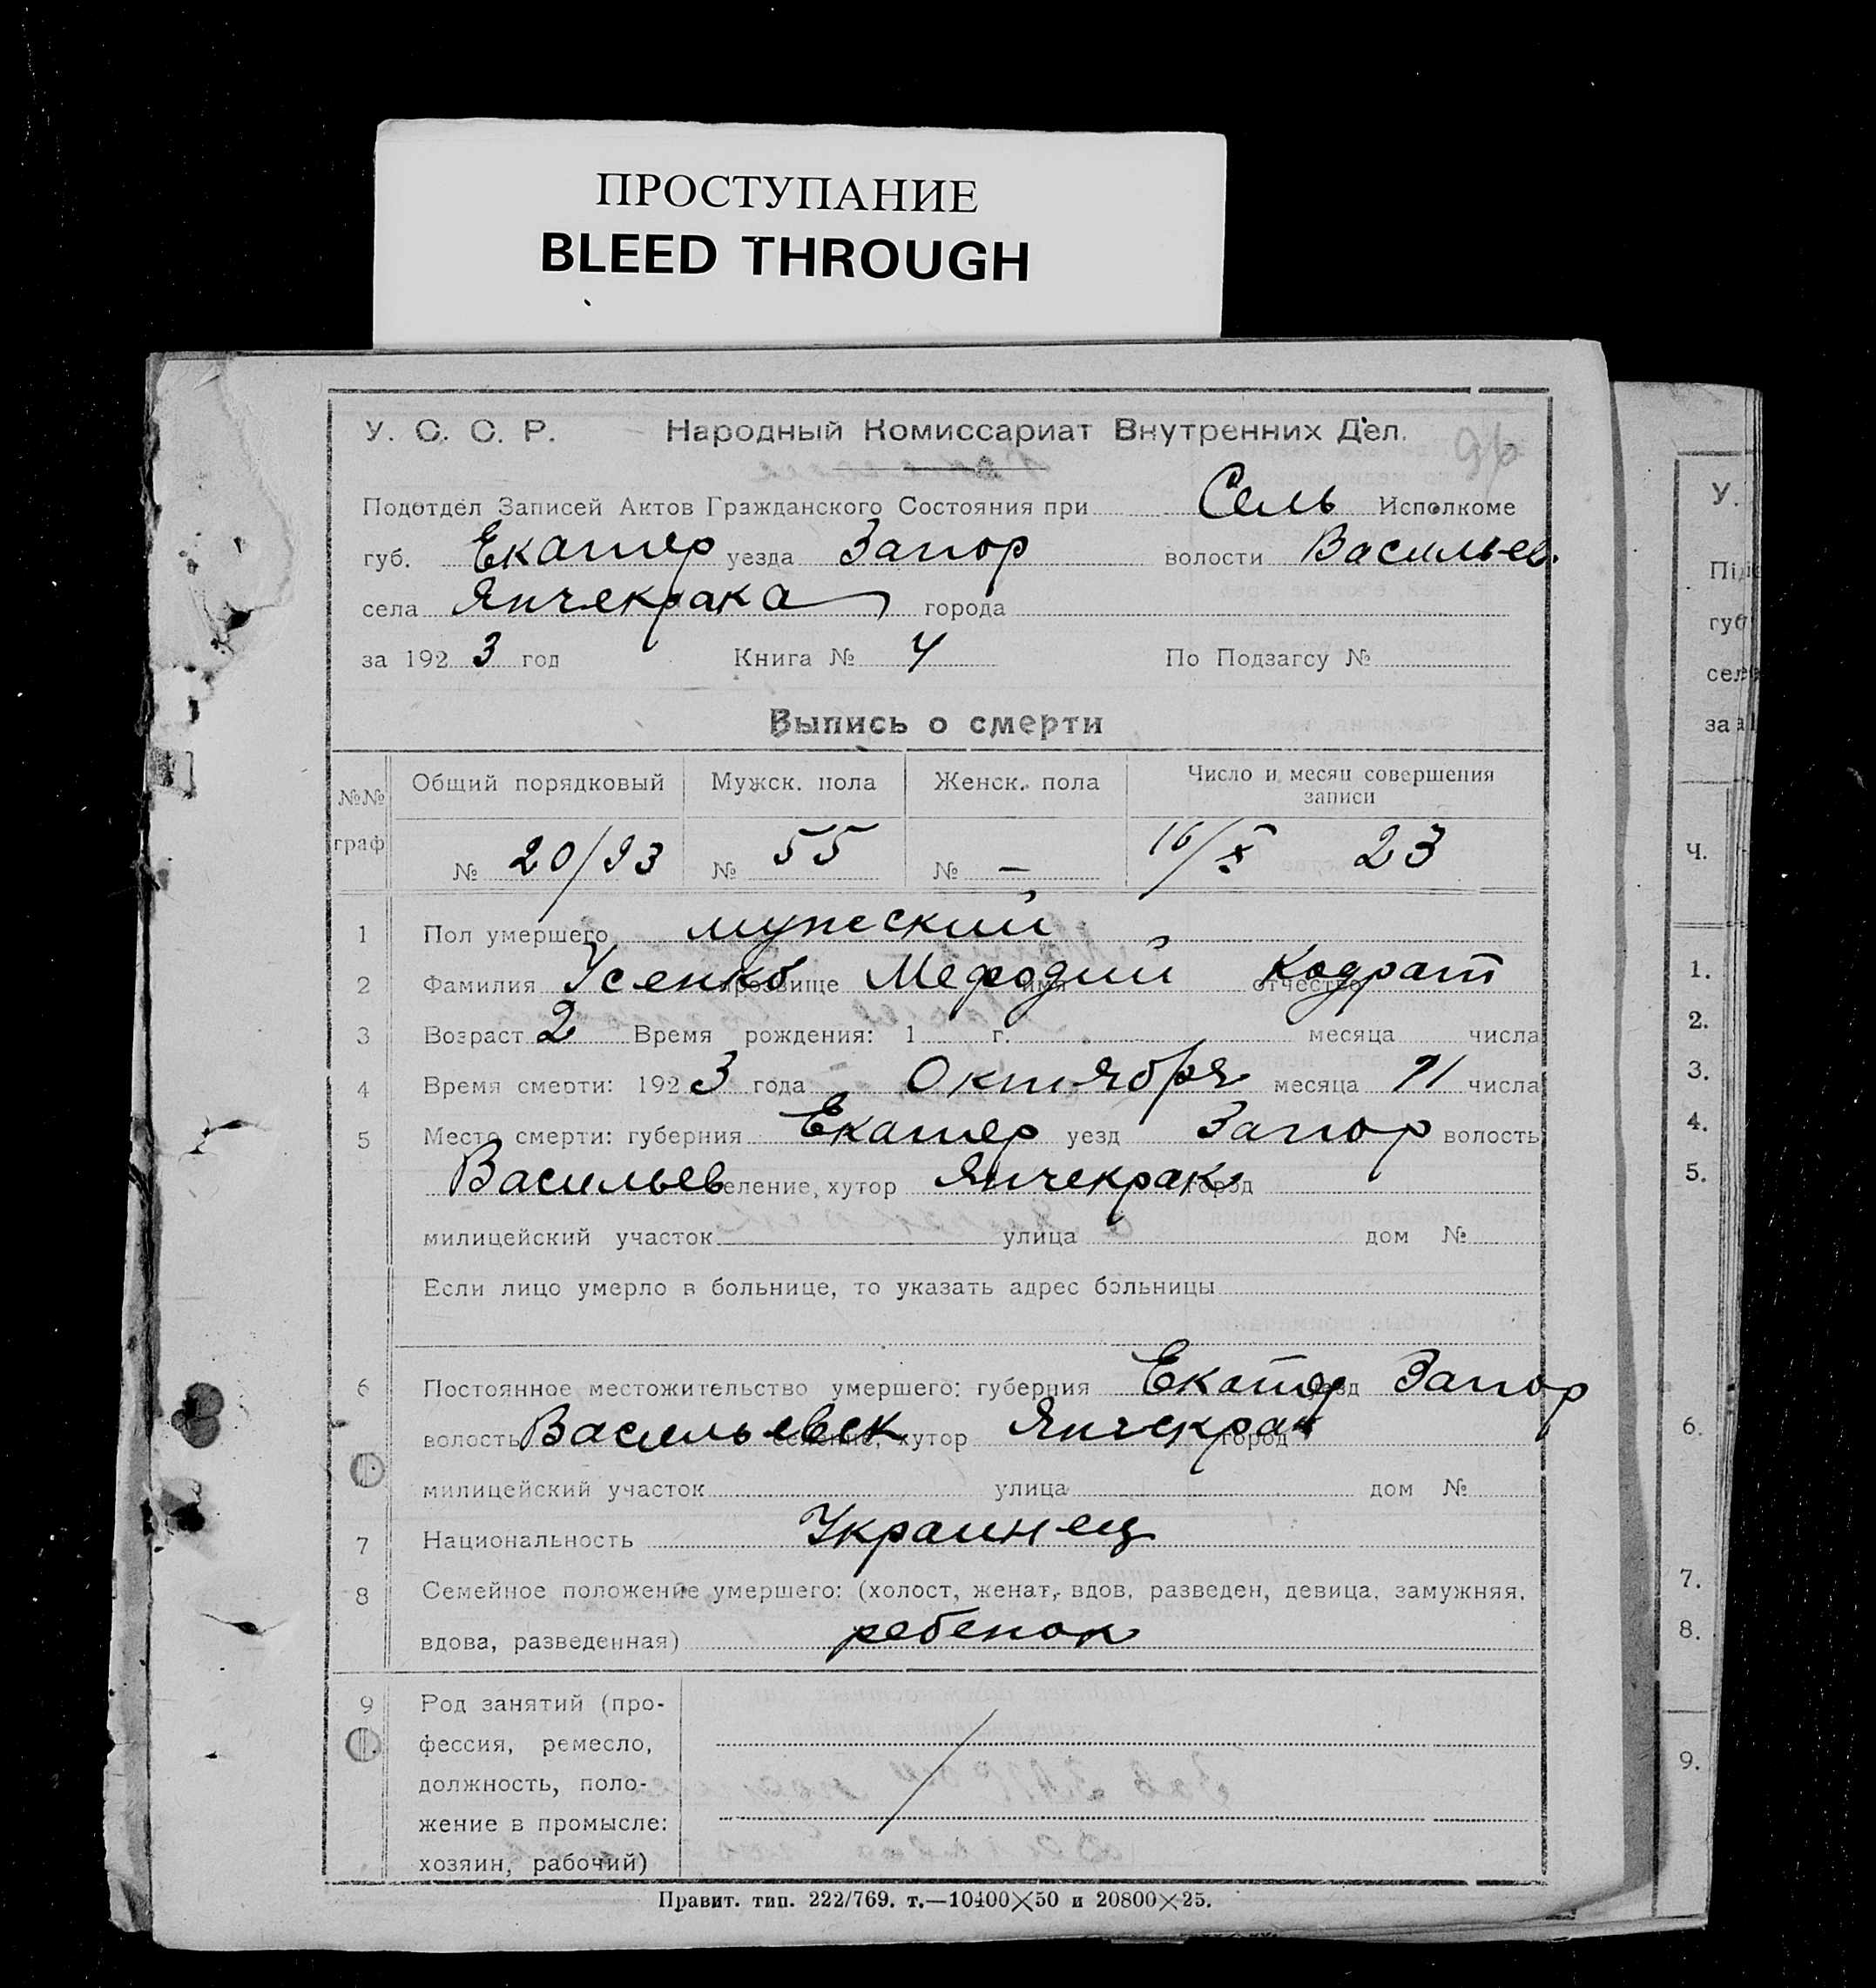 ПРОСТУПАНИЕ
BLEED THROUGH
96
У. С. С. Р. Народный Комиссариат Внутренних Дел.
Подотдел Записей Актов Гражданского Состояния при Сель Исполкоме
губ. Екатер уезда Запор волости Васильев.
села Янчекрака города
за 1923 год Книга № 4 По Подзагсу №
Выпись о смерти
№№ граф Общий порядковый Мужск. пола Женск. пола Число и месяц совершения записи
№ 20/93 № 55 № — 16/X 23
1 Пол умершего мужеский
2 Фамилия Усенко прозвище Мефодий имя Кодрат отчество
3 Возраст 2 Время рождения: 1 г. месяца числа
4 Время смерти: 1923 года Октября месяца 11 числа
5 Место смерти: губерния Екатер уезд Запор волость
Васильев селение, хутор Янчекрак город
милицейский участок улица дом №
Если лицо умерло в больнице, то указать адрес больницы
6 Постоянное местожительство умершего: губерния Екатер уезд Запор
волость Васильевск селение, хутор Янчекрак город
милицейский участок улица дом №
7 Национальность Украинец
8 Семейное положение умершего: (холост, женат, вдов, разведен, девица, замужняя,
вдова, разведенная) ребенок
9 Род занятий (про-
фессия, ремесло,
должность, поло-
жение в промысле:
хозяин, рабочий)
Правит. тип. 222/769. т.—10400×50 и 20800×25.
У.
губ
за
Ч.
1.
2.
3.
4.
5.
6.
7.
8.
9.